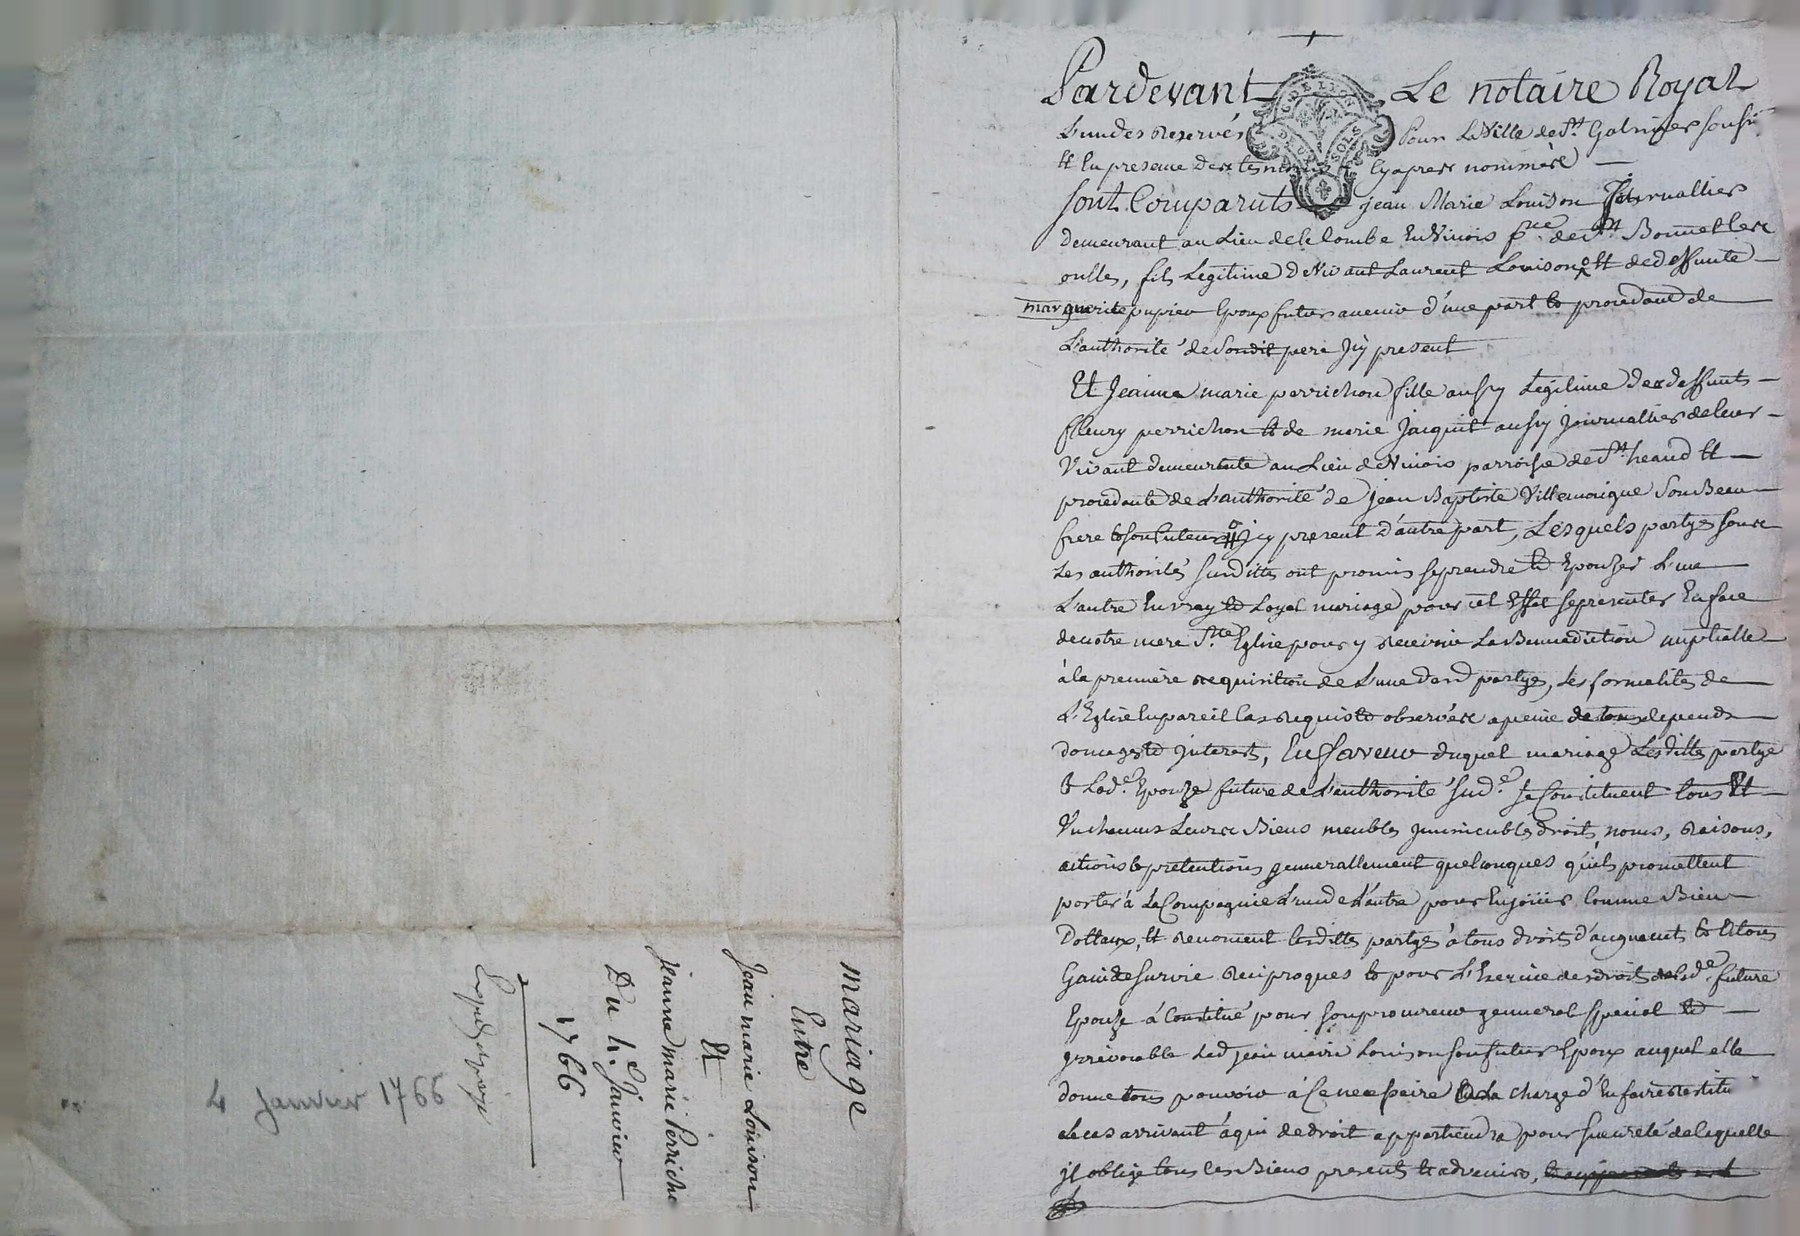 Pardevant Le notaire Royal
L'un des Reservés Pour La Ville de St. Galmier soussi
Et En presence des tesmoins Cy apres nommés
sont Comparuts jean Marie Louison Journallier
Demeurant au Lieu de la Combe En Vinois psse. de St. Bonnet les
oulles, fils Legitime de Vivant Laurent Louison Et de deffunte
marguerite pupier Epoux futur avenir d'une part Et procedant de
L'authorité de Son dit pere Jcy present
Et Jeanne marie perrichon fille aussy Legitime des deffunts
fleury perrichon Et de marie Jacquit aussy journallier de leur
Vivant demeurante au Lieu de Vinois parroisse de St. heand Et
procedante de L'authorité de jean Baptiste Villemaigne Son Beau
frere Et son tuteur Jcy present d'autre part, Lesquels partyes sous
Les authorités susdittes ont promis se prendre Et Epouzer L'une
L'autre En vray Et Loyal mariage pour cet Effet se presenter En face
de notre mere Ste. Eglise pour y Recevoir La Bennediction nuptialle
à la premiere requisition de L'une desd partyes, Les formalités de
L'Eglise En pareil Cas Requis Et observées a peine de tous depends
domages Et interests, En faveur duquel mariage Lesdittes partyes
Et Lade. Epouze future de L'authorité sude. se Constituent tous Et
Un chacuns Leurs Biens meubles jmmeubles droits, noms, Raisons,
actions Et pretentions gennerallement quelconques qu'ils promettent
porter à La Compagnie L'un de L'autre pour En joüir Comme Bien
Dottaux, Et Renoncent Lesdittes partyes à tous droits d'augment Et à tous
Gain de survie Reciproques Et pour L'Exercice des droits de Lade. future
Epouze à Constitué pour son procureur genneral special Et
jrrevocable Led jean marie Louison son futur Epoux auquel elle
donne tous pouvoir à Ce necessaire à La charge d'En faire Restitu
Le cas arrivant à qui de droit appartiendra pour sureté de laquelle
jl oblige tous Les Biens presents Et advenirs,
mariage
Entre
Jean marie Louison
Et
jeanne marie Periche
Du 4e Janvier
1766
4 Janvier 1766